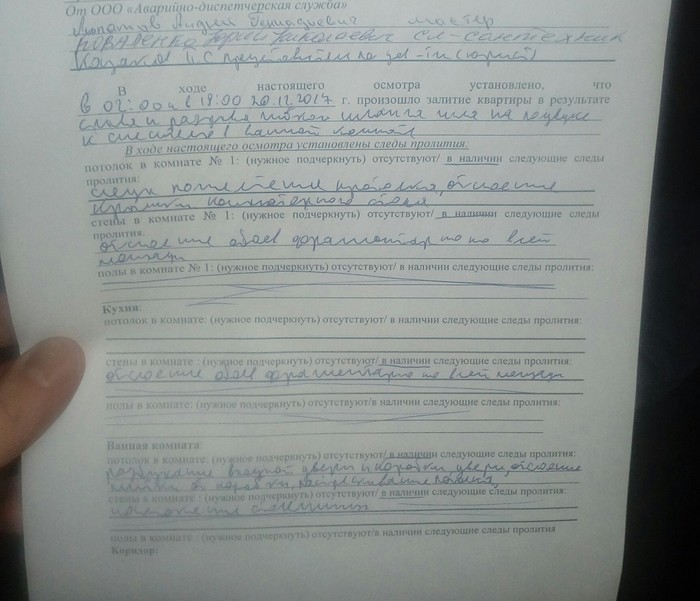 От ООО «Аварийно-диспетчерская служба»
Лопатов Андрей Геннадьевич мастер
Коваленко Юрий Николаевич сл-сантехник
Казаков И.С представитель по дов-ти (юрист)
В ходе настоящего осмотра установлено, что
в 02:00 и в 18:00 20.12.2017 г. произошло залитие квартиры в результате
и разрыва гибкого шланга на подводке
к смесителю в ванной комнате
В ходе настоящего осмотра установлены следы пролития:
потолок в комнате № 1: (нужное подчеркнуть) отсутствуют/ в наличии следующие следы
пролития:
следы потолка, отслоение
крышки компьютерного стола
стены в комнате № 1: (нужное подчеркнуть) отсутствуют/ в наличии следующие следы
пролития.
отслоение обоев фрагментарно по всей
площади
полы в комнате № 1: (нужное подчеркнуть) отсутствуют/ в наличии следующие следы пролития:
Кухня:
потолок в комнате: (нужное подчеркнуть) отсутствуют/ в наличии следующие следы пролития:
стены в комнате : (нужное подчеркнуть) отсутствуют/ в наличии следующие следы пролития:
отслоение обоев фрагментарно по всей площади
полы в комнате: (нужное подчеркнуть) отсутствуют/в наличии следующие следы пролития:
Ванная комната:
потолок в комнате: (нужное подчеркнуть) отсутствуют/ в наличии следующие следы пролития:
разбухание входной двери и коробки двери, отслоение
от коробки, растрескивание
стены в комнате : (нужное подчеркнуть) отсутствуют/ в наличии следующие следы пролития:
полы в комнате: (нужное подчеркнуть) отсутствуют/ в наличии следующие следы пролития
Коридор: